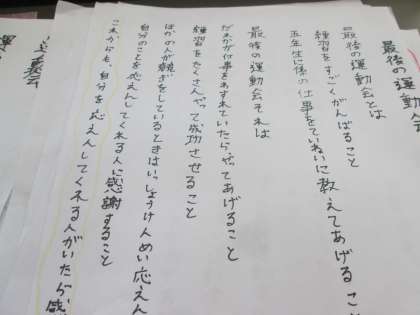 最後の運動会
最後の運動会とは
最後の運動会
練習をすごくがんばること
五年生に係の仕事をていねいに教えてあげるこ
最後の運動会それは
だれかが仕事をわすれていたらやってあげること
練習をたくさんやって成功させること
ほかの人が競ぎをしているときはいっしょうけんめい応えん
自分のことを応えんしてくれる人に感謝すること
これからも、自分を応えんしてくれる人がいたら、感
運動会
運